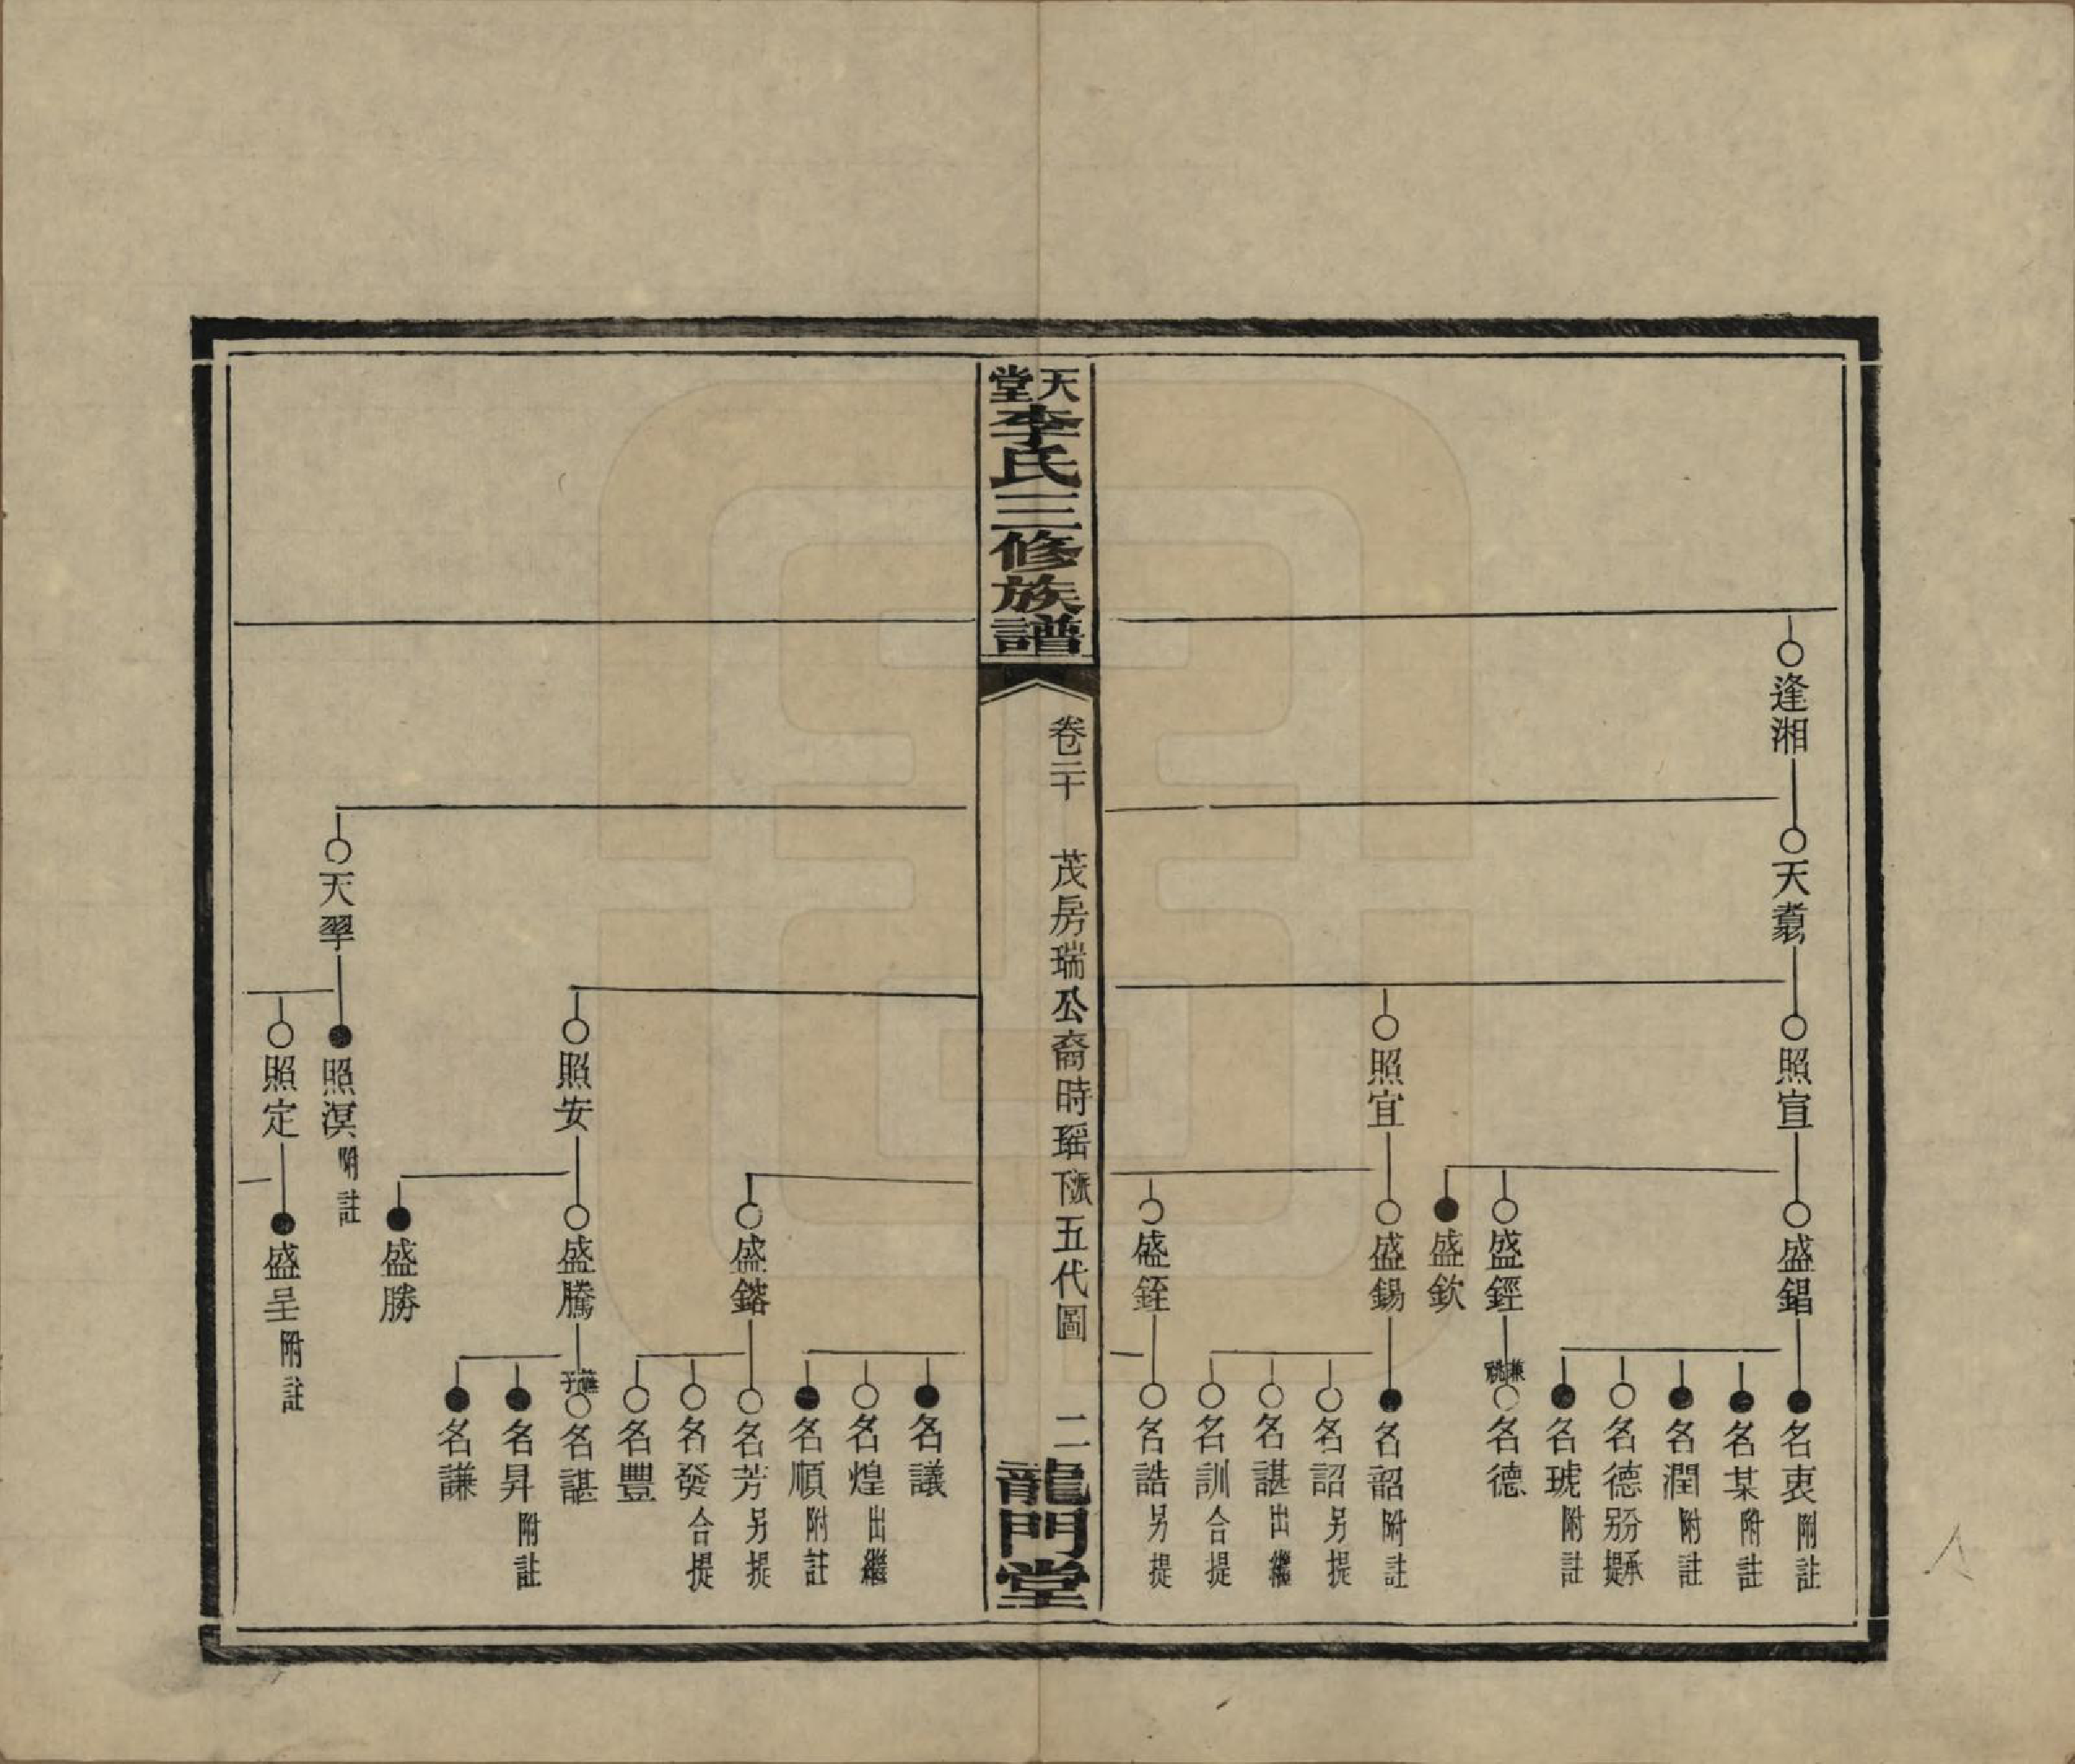 逢湘
天翥
照宣
盛錩
名衷 附註
名某 附註
名潤 附註
名德 另提 分承
名琥 附註
盛鏗
兼祧 名德
盛欽
照宜
盛錫
名韶 附註
名詔 另提
名諶 出繼
名訓 合提
盛銍
名誥 另提
天堂李氏三修族譜
卷二十
茂房瑞公裔時瑶下派五代圖
二
龍門堂
名議
名煌 出繼
名順 附註
盛鍩
名芳 另提
名發 合提
名豐
照安
盛騰
名諶
名昇 附註
名謙
盛勝
天翠
照溟 附註
照定
盛呈 附註